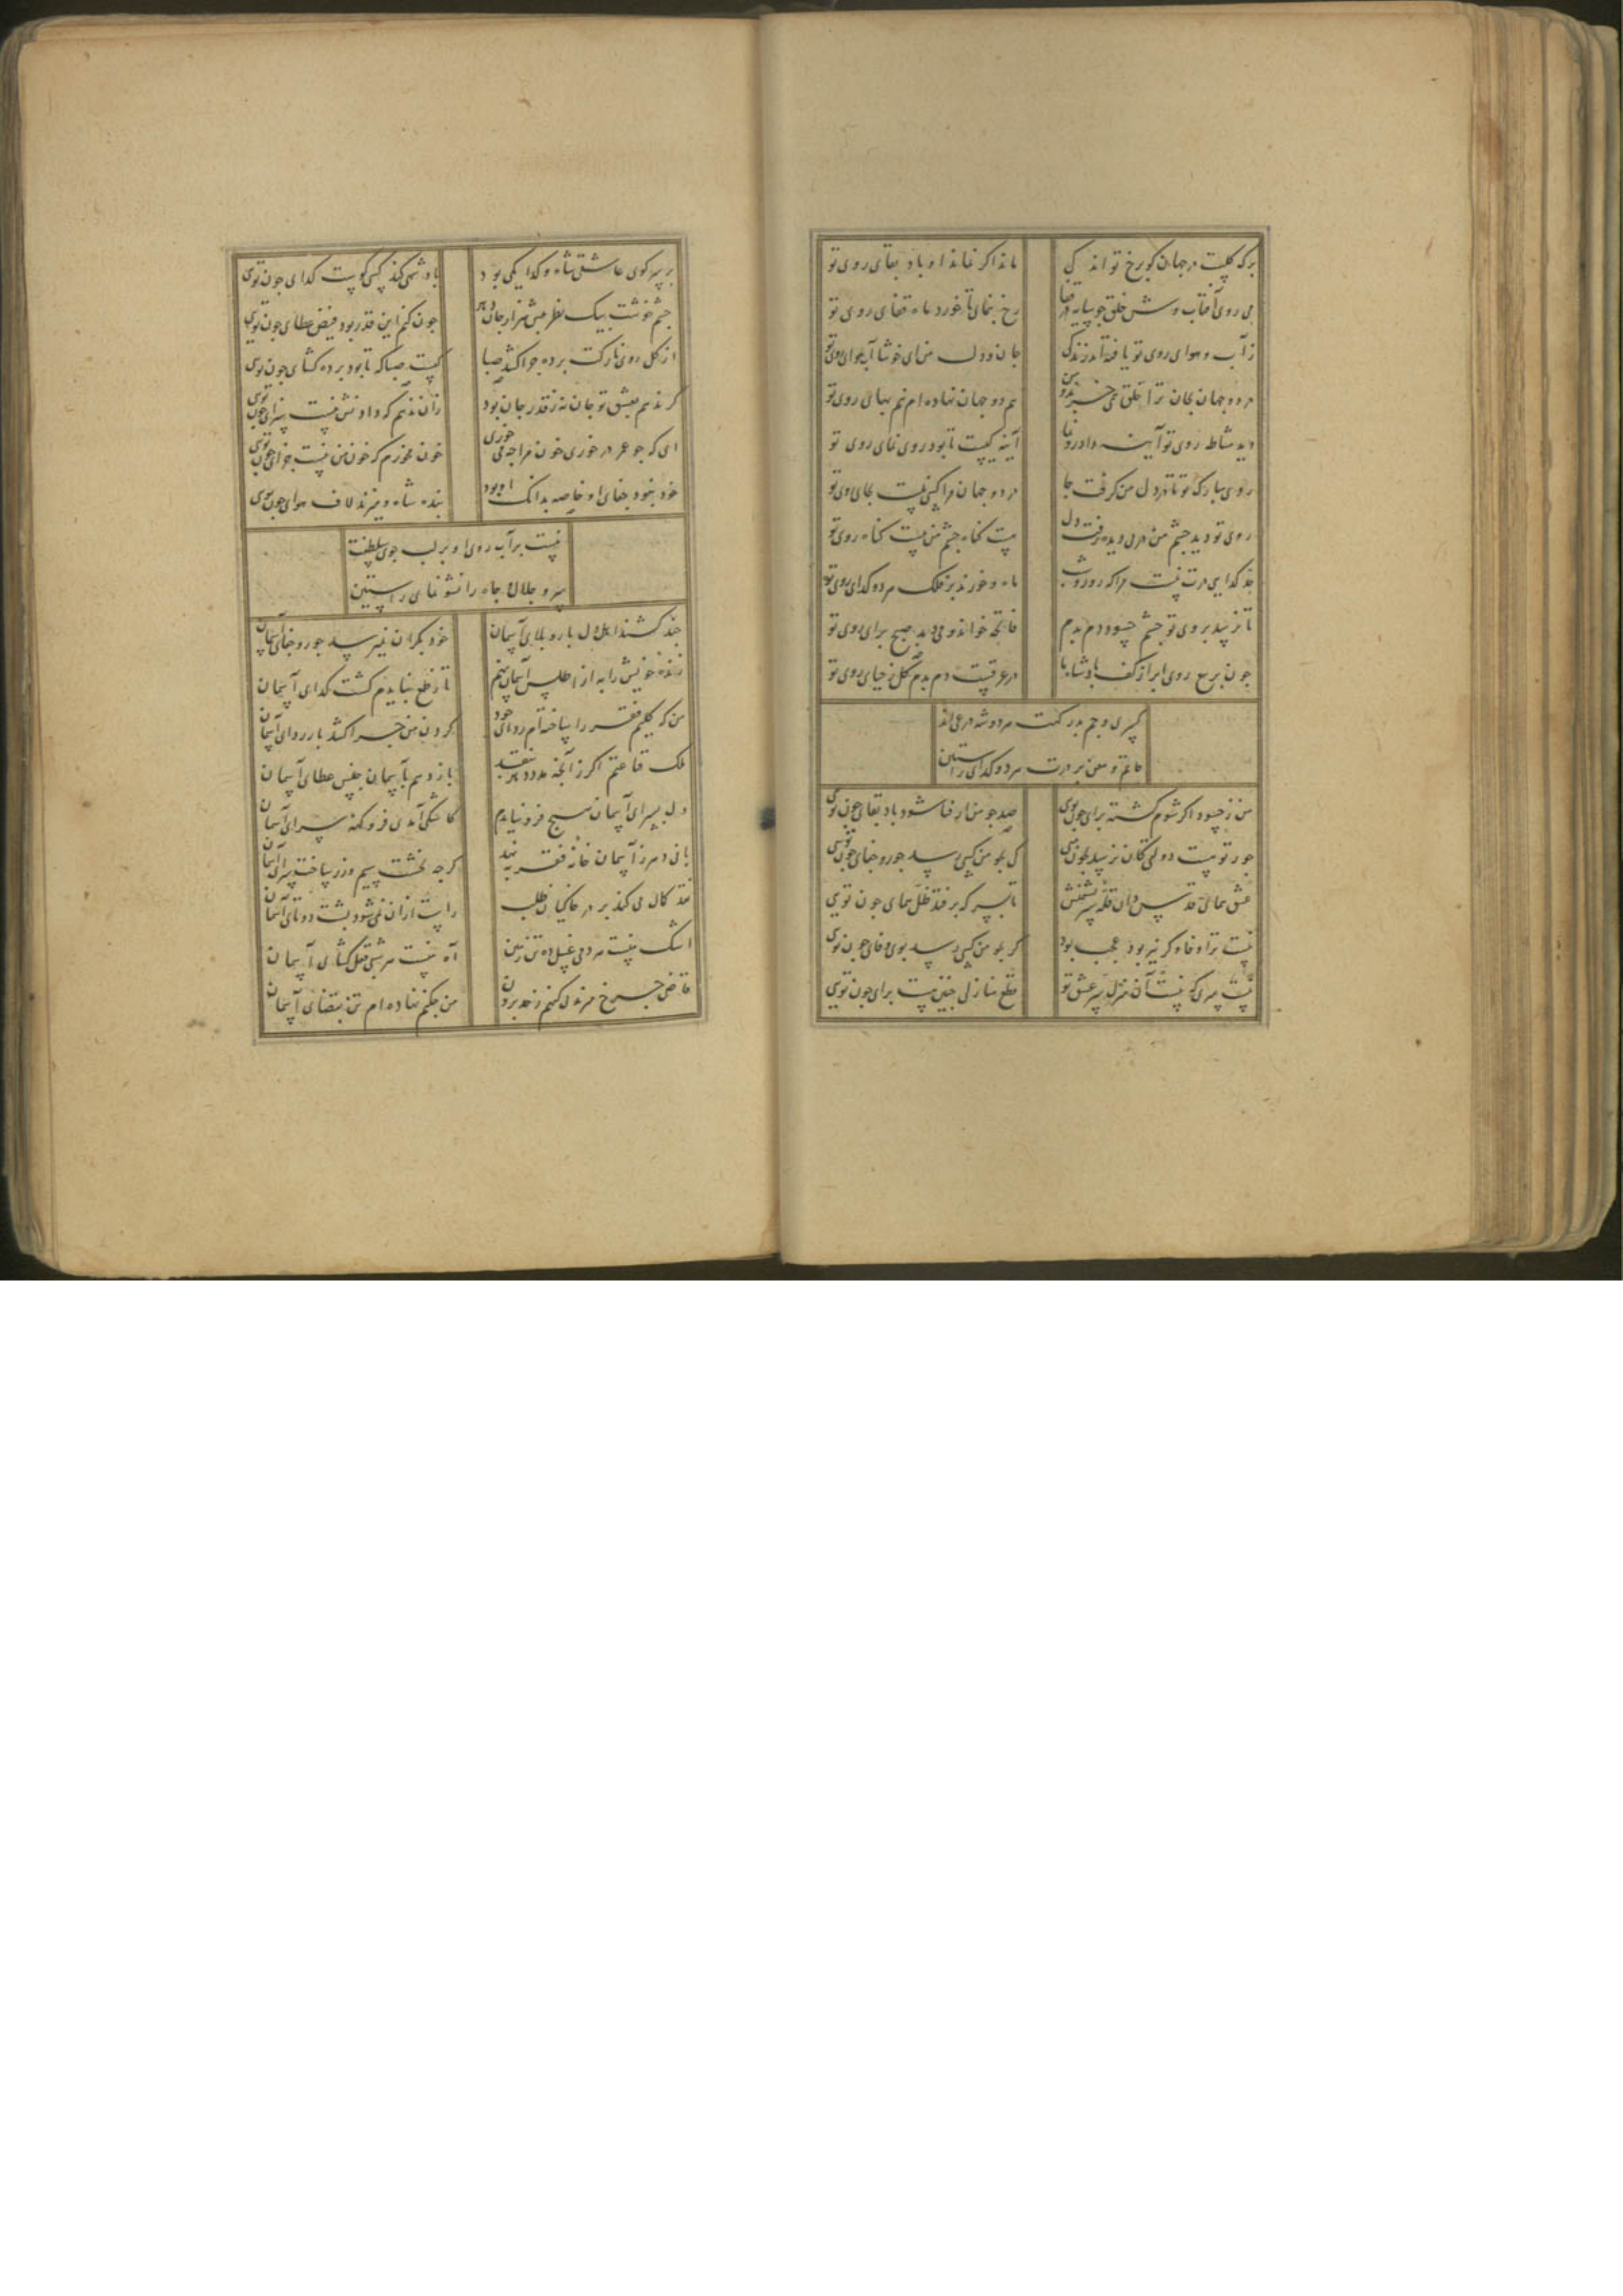 برک کلیست در جهان کو رخ تو ماند کی
ماند اکر نماند او باد بقای روی تو
می روی آفتاب وش خلق جو سایه در قفا
رخ بنمای تا خورد ماه قفای روی تو
ز آب و هوای روی تو یافته اند زندکی
جان و دل من ای خوشا آب و هوای روی تو
در دو جهان بجان ترا خلق همی خرند و من
هم دو جهان نهاده ام نیم بهای روی تو
دید مشاطه روی تو آینه داد رونما
آینه کیست تا بود روی نمای روی تو
روی مبارک تو تا در دل من کرفت جا
در دو جهان مرا کسی نیست بجای روی تو
روی تو دید جشم من در دل و دیده رفت دل
هست کناه جشم من نیست کناه روی تو
خود کدایی درت نیست مرا که روز و شب
ماه و خورند بر فلک هر دو کدای روی تو
تا نرسد بروی تو جشم حسود دم بدم
فاتحه خواند و می دمد صبح برای روی تو
جون برع روی ابر از کف بادشاه ما
در عرقست دم بدم کل ز حیای روی تو
کسری و جم بدر کهت هر دو شه در می اند
حاتم و معن بر درت هر دو کدای راستین
من ز حسود اکر شوم کشته برای جون توی
صد جو من ار فنا شود باد بقای جون توی
جور تو هست دولتی کان نرسد بجون منی
کی بجو من کسی رسد جور و جفای جون تویی
تا بسر که بر فتد ظل همای جون تویی
نیست ترا وفا و کر نیز بود عجب بود
کر بجو من کسی رسد بوی وفای جون توی
نیست سری که نیست آن منزل سر عشق تو
قطع منازلی جنین نیست برای جون تویی
بر سر کوی عاشقی شاه و کدا یکی بود
بادشهی کند کسی کوست کدای جون توی
جشم خوشت بیک نظر می بخشد هزار جان
جون کنم این قدر بود فیض عطای جون تویی
از کل روی نازکت برده جرا کشد صبا
کیست صبا که تا بود برده کشای جون توی
کر ندهم بعشق تو جان نه ز قدر جان بود
زان ندهم که دادنش نیست سزای جون تویی
ای که جو غم در خوری خون مرا جه می خوری
خون مخورم که خون من نیست غذای جون تویی
خود نبود جفای او خاصه بدانک او بود
بنده شاه و میزند لاف هوای جون توی
نیست بر آب روی او بر لب جوی سلطنت
سرو جلال و جاه را نشو نمای راستین
جند کشند اهل دل بار و بلای آسمان
خود بکران نمیرسد جور و جفای آسمان
ژنده خویش را به از اطلس آسمان نهم
تا ز طمع نبایدم کشت کدای آسمان
من که کلیم فقر را ساخته ام ردای خود
کردن من جرا کشد بار ردای آسمان
ملک قناعتم اکر ز آنجه مدد دهد بنقد
باز دهم بآسمان جنس عطای آسمان
دل بسرای آسمان هیج فرو نیایدم
کاشکی آمدی فرو کهنه سرای آسمان
بانی دهر ز آسمان خانه فقر به نهد
کرجه بخشت سیم و زر ساخت سرای آسمان
قد کمال می کند بر در خاکیان طلب
راست از آن نمی شود بشت دو تای آسمان
اشک نیست
آه نیست
قاضی جرخ
من بحکم نهاده ام تن بقضای آسمان